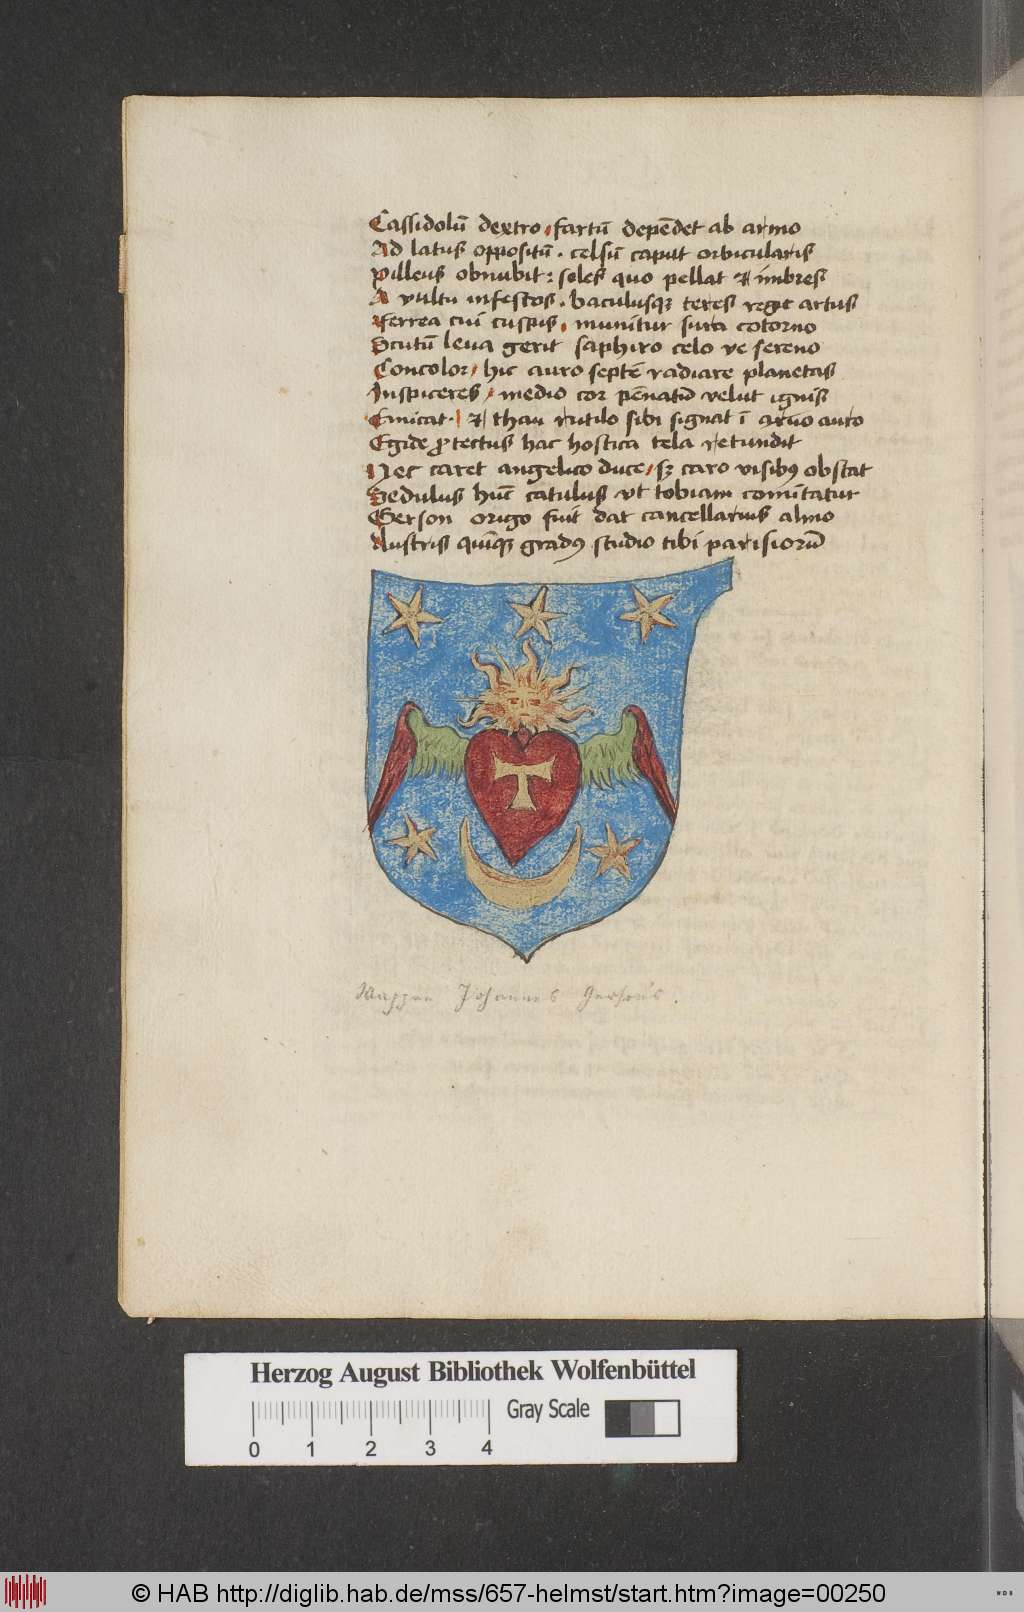 Cassidolū dextro, fartū depēdet ab armo
Ad latus oppositū. celsū caput orbicularis
Pilleus obnubit: soles quo pellat et imbres
A vultu infestos. baculusqꝫ teres regit artus
Ferrea cui cuspis, munitur sura cotorno
Scutū leua gerit saphiro celo ve sereno
Concolor, hic auro septē radiare planetas
Inspiceres, medio cor pēnatū velut ignis
Emicat. et thau rutilo sibi signat ī aruo auro
Egide ꝓtectus hac hostica tela retundit
Nec caret angelico duce, sꝫ caro visibꝰ obstat
Sedulus hūc catulus vt tobiam comitatur
Gerson origo fuit dat cancellarius almo
Austris quīqꝫ gradꝰ studio tibi parisiorū
Wappen Johannes Gerson's.
Herzog August Bibliothek Wolfenbüttel
Gray Scale
0 1 2 3 4
© HAB http://diglib.hab.de/mss/657-helmst/start.htm?image=00250